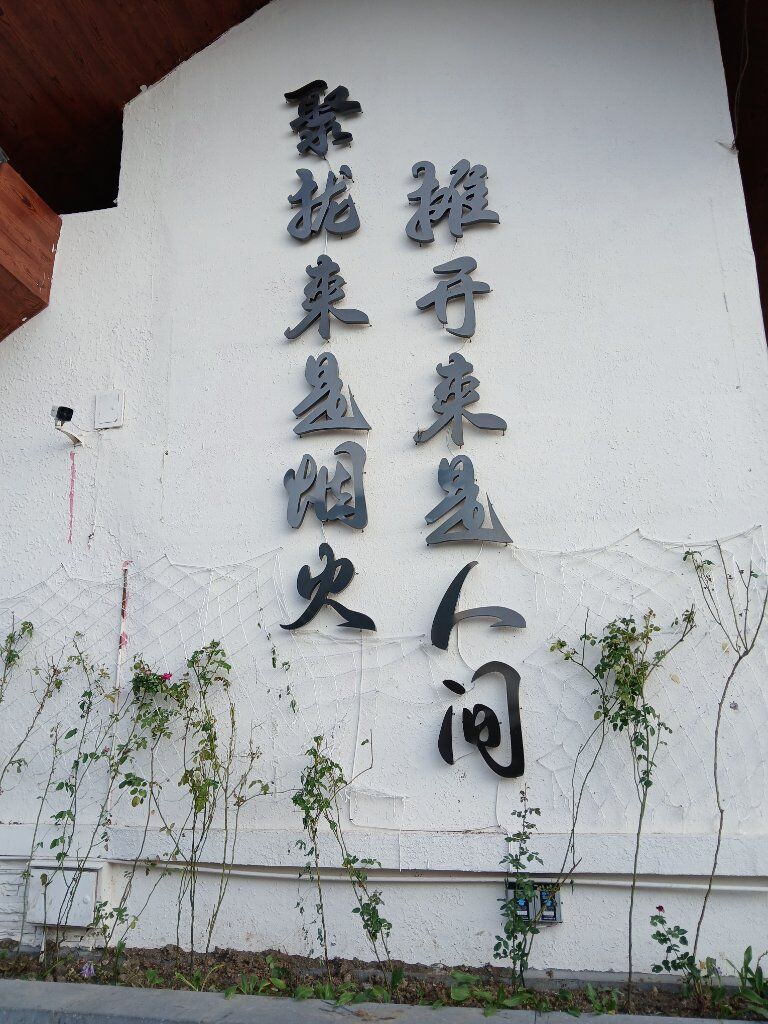 聚拢来是烟火
摊开来是人间